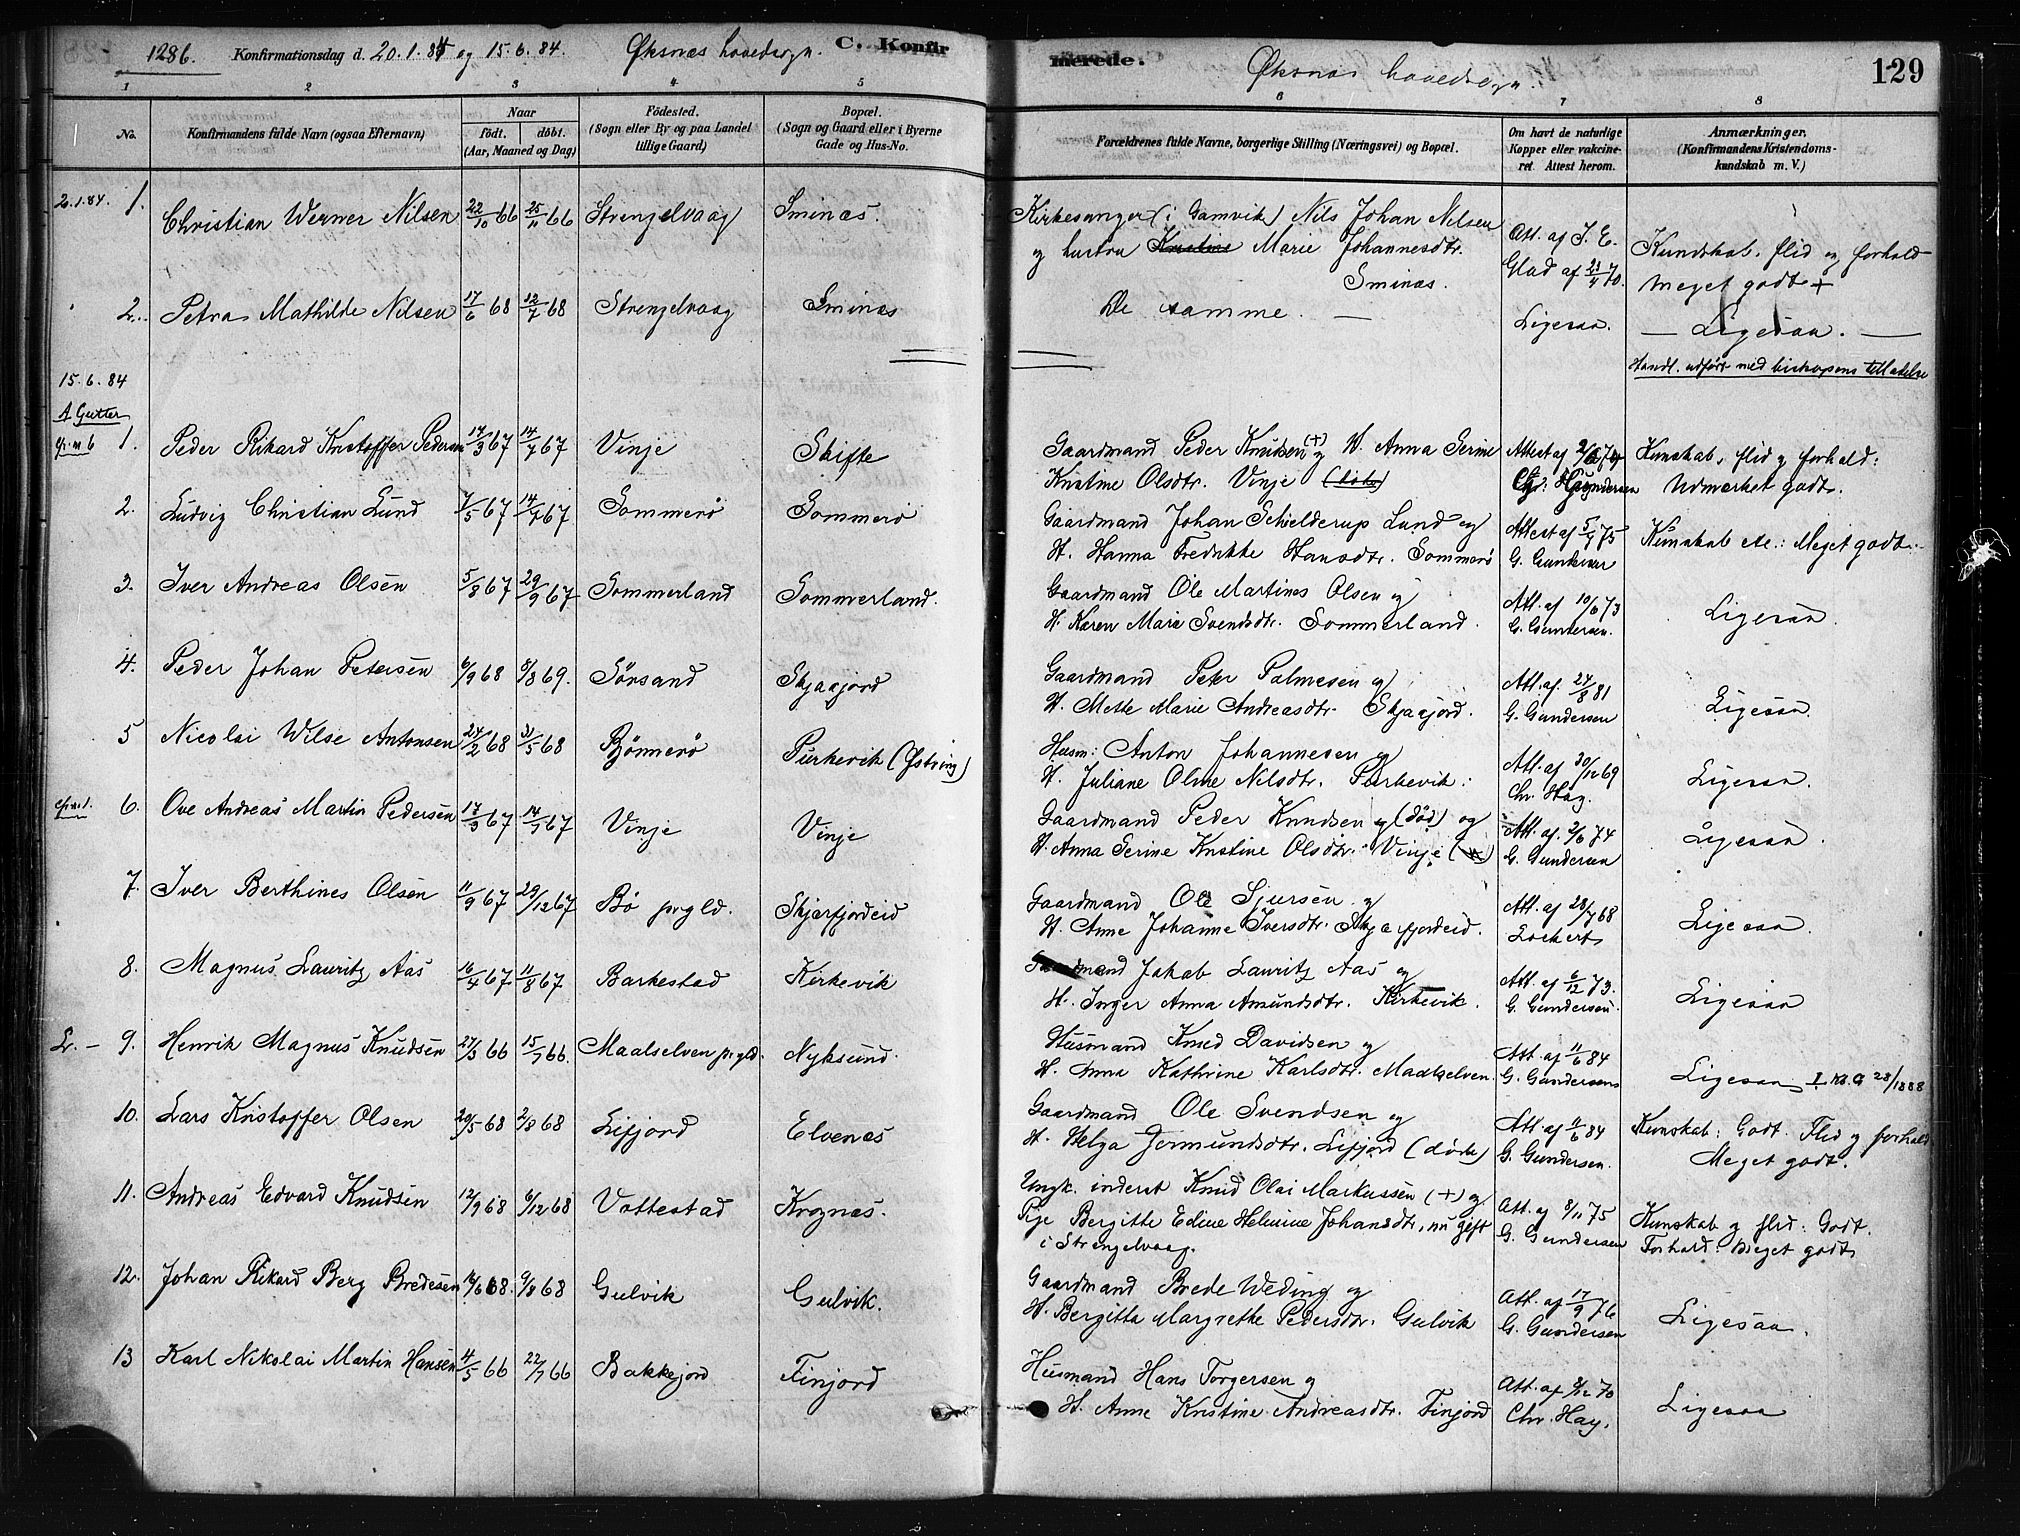 1286. Konfirmationsdag d. 20.1.84 og 15.6.84. Øksnæs hovedsogn. C. Konfir
merede. Øksnæs hovedsogn. 129
1 2 3 4 5 6 7 8
No. Konfirmandens fulde Navn (ogsaa Efternavn) Naar födt. döbt. (Aar, Maaned og Dag) Födested. (Sogn eller By og paa Landet tillige Gaard) Bopæl. (Sogn og Gaard eller i Byerne Gade og Hus-No.
Forældrenes fulde Navne, borgerlige Stilling (Næringsvei) og Bopæl. Om havt de naturlige Kopper eller vakcineret. Attest herom. Anmærkninger. (Konfirmandens Kristendomskundskab m. V.)
1. Christian Werner Nilsen 22/10 66 25/11 66 Strengelvaag Sminæs. Kirkesanger (i Gamvik) Nils Johan Nilsen
og hustru Marie Johannesdtr. Sminæs. Att. af J. E. Glad af 70. Kundskab, flid og forhold meget godt +
2. Petra Mathilde Nilsen 17/6 68 12/7 68 Strengelvaag Sminæs De samme. — Ligesaa. — Ligesaa. —
Handl. udført med biskopens tilladelse
15.6.84
A Gutter
1. Peder Rikard Kristoffer Pedersen 17/3 67 14/7 67 Vinje Skifte Gaardmand Peder Knudsen (+) og H. Anna Serine
Kristine Olsdtr. Vinje Kunskab, flid og forhold: Udmerket godt.
2. Ludvig Christian Lund 7/5 67 14/7 67 Sommerø Sommerø Gaardmand Johan Schielderup Lund og
H. Hanna Fredrikke Hansdtr. Sommerø Attest af 75 G. Gundersen Kunskab etc.: Meget godt.
3. Iver Andreas Olsen 5/8 67 29/9 67 Sommerland Sommerland. Gaardmand Ole Martines Olsen og
H. Karen Marie Svendsdtr. Sommerland. Att. af 10/6 73 G. Gundersen. Ligesaa
4. Peder Johan Petersen 6/9 68 8/8 69. Sörsand Skjaajord Gaardmand Peter Palmesen og
H. Mette Marie Andreasdtr. Skjaajord. Att. af. 24/8 81 G. Gundersen Ligesaa
5 Nicolai Wilse Antonsen 24/2 68 31/5 68 Rönnerö Purkevik Husm: Anton Johannesen og
H. Juliane Oline Nilsdtr. Purkevik: Att. af 30/12 69 Chr. Hag. Ligesaa.
6. Ove Andreas Martin Pedersen 17/3 67 14/7 67 Vinje Vinje Gaardmand Peder Knudsen (död) og
H. Anna Serine Kristine Olsdtr. Vinje Att. af. 2/6 74 G. Gundersen Ligesaa.
7. Iver Berthines Olsen 11/9 67 29/12 67 Bö prgld. Skjærfjordeid Gaardmand Ole Sjursen og
H. Anne Johanne Iversdtr. Skjærfjordeid. Att. af 28/7 68 Lockert Ligesaa.
8. Magnus Lauritz Aas 16/4 67 11/8 67 Barkestad Kirkevik Jakob Lauritz Aas og
H. Inger Anna Amundsdtr. Kirkevik. Att. af 6/12 73. G. Gundersen. Ligesaa
9. Henrik Magnus Knudsen 27/3 66 15/7 66. Maalselven prgld. Nyksund. Husmand Knud Davidsen og
H. Anna Kathrine Karlsdtr. Maalselven. Att. af 11/6 84 G. Gundersen Ligesaa
10. Lars Kristoffer Olsen 20/5 68 2/8 68 Lifjord Elvenes Gaardmand Ole Svendsen og
H. Helga Jermundsdtr. Lifjord Att. af 11/6 84 G. Gundersen. Kunskab: Godt. Flid og forhold Meget godt.
11. Andreas Edvard Knudsen 12/9 68 6/12 68 Vottestad Krognæs. Ungk. inderst Knud Olai Markussen (+) og
Pige Bergitte Edine Helmine Johansdtr., nu gift
i Strengelvaag. Att. af 8/11 75 G. Gundersen Kunskab og flid: Godt. Forhold: Meget godt
12. Johan Rikard Berg Bredesen 68. 9/8 68 Gulvik Gulvik. Gaardmand Brede Weding og
H. Bergitta Margrethe Pedersdtr. Gulvik Att. af 17/9 76 G. Gundersen Ligesaa.
13 Karl Nikolai Martin Hansen 66 22/7 66 Bakkejord Finjord Husmand Hans Torgersen og
H. Anne Kristine Andreasdtr. Finjord Att. af 8/12 70 Chr. Hag. Ligesaa